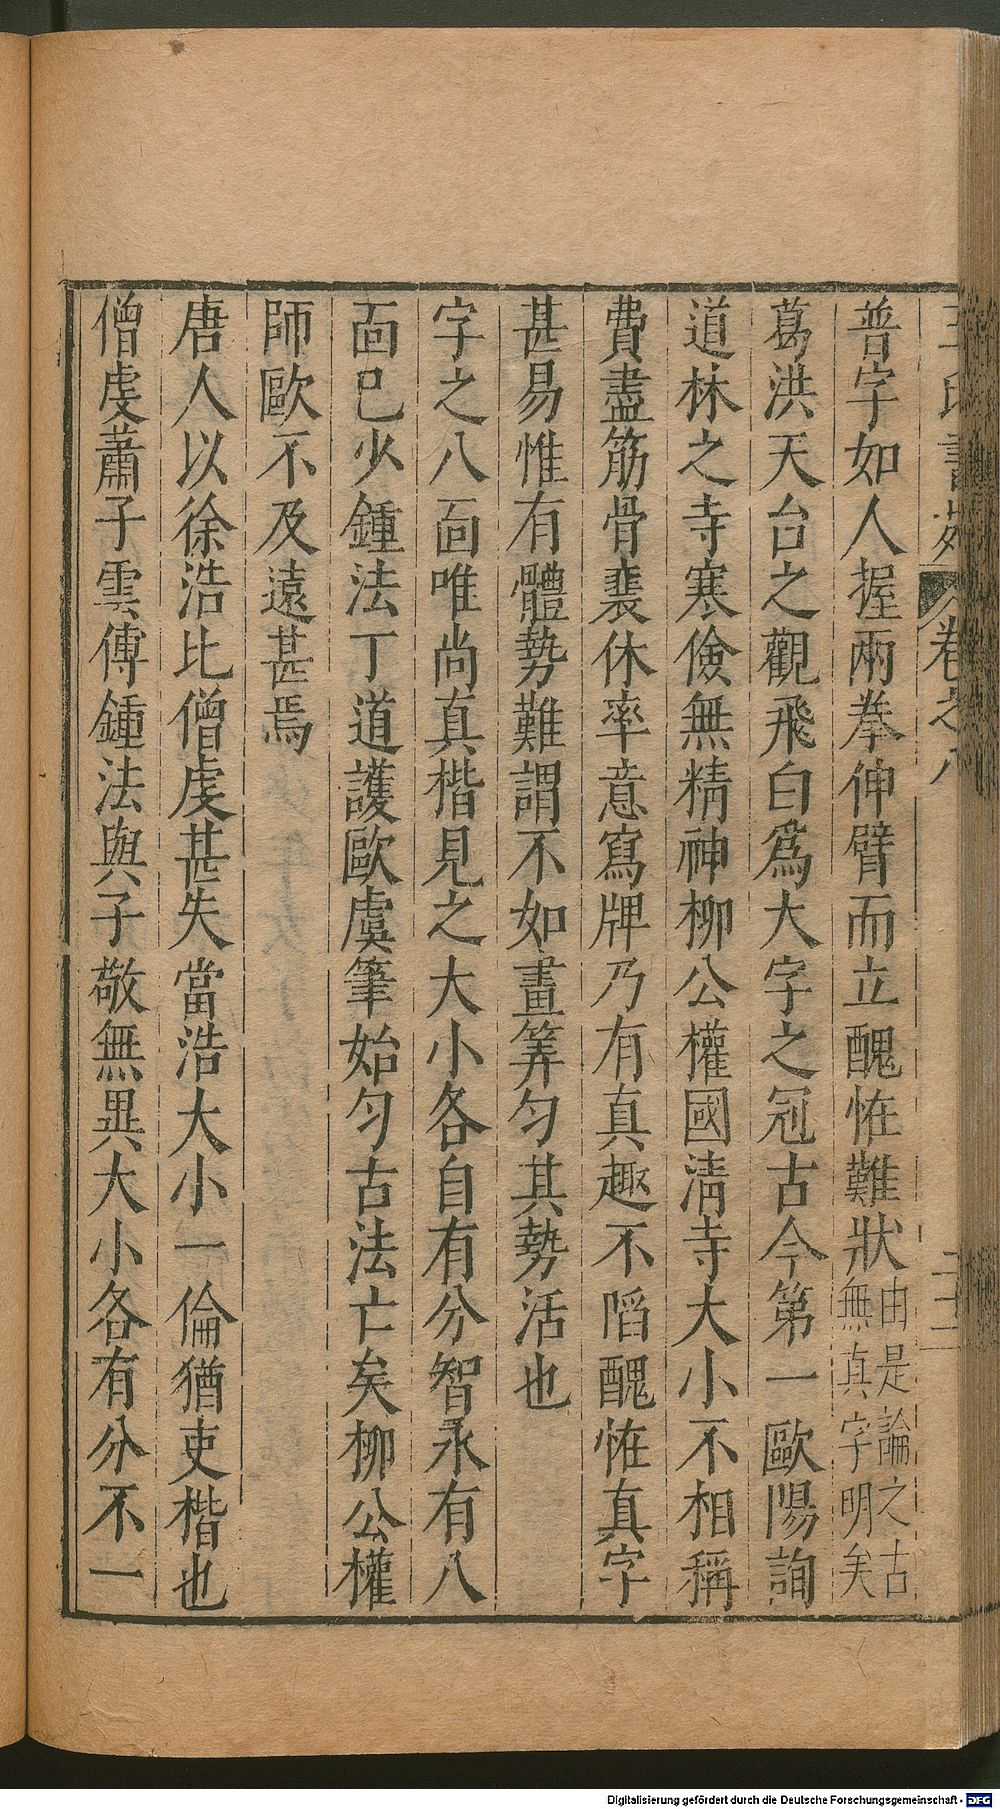 王氏書苑 卷之八 二十二
普字如人握兩拳伸臂而立醜恠難狀由是論之古無真字明矣
葛洪天台之觀飛白爲大字之冠古今第一歐陽詢
道林之寺寒儉無精神柳公權國清寺大小不相稱
費盡筋骨裴休率意寫牌乃有真趣不䧟醜恠真字
甚易惟有體勢難謂不如畫筭勻其勢活也
字之八面唯尚真楷見之大小各自有分智永有八
面已少鍾法丁道護歐虞筆始勻古法亡矣柳公權
師歐不及遠甚焉
唐人以徐浩比僧虔甚失當浩大小一倫猶吏楷也
僧虔蕭子雲傳鍾法與子敬無異大小各有分不一
Digitalisierung gefördert durch die Deutsche Forschungsgemeinschaft - DFG